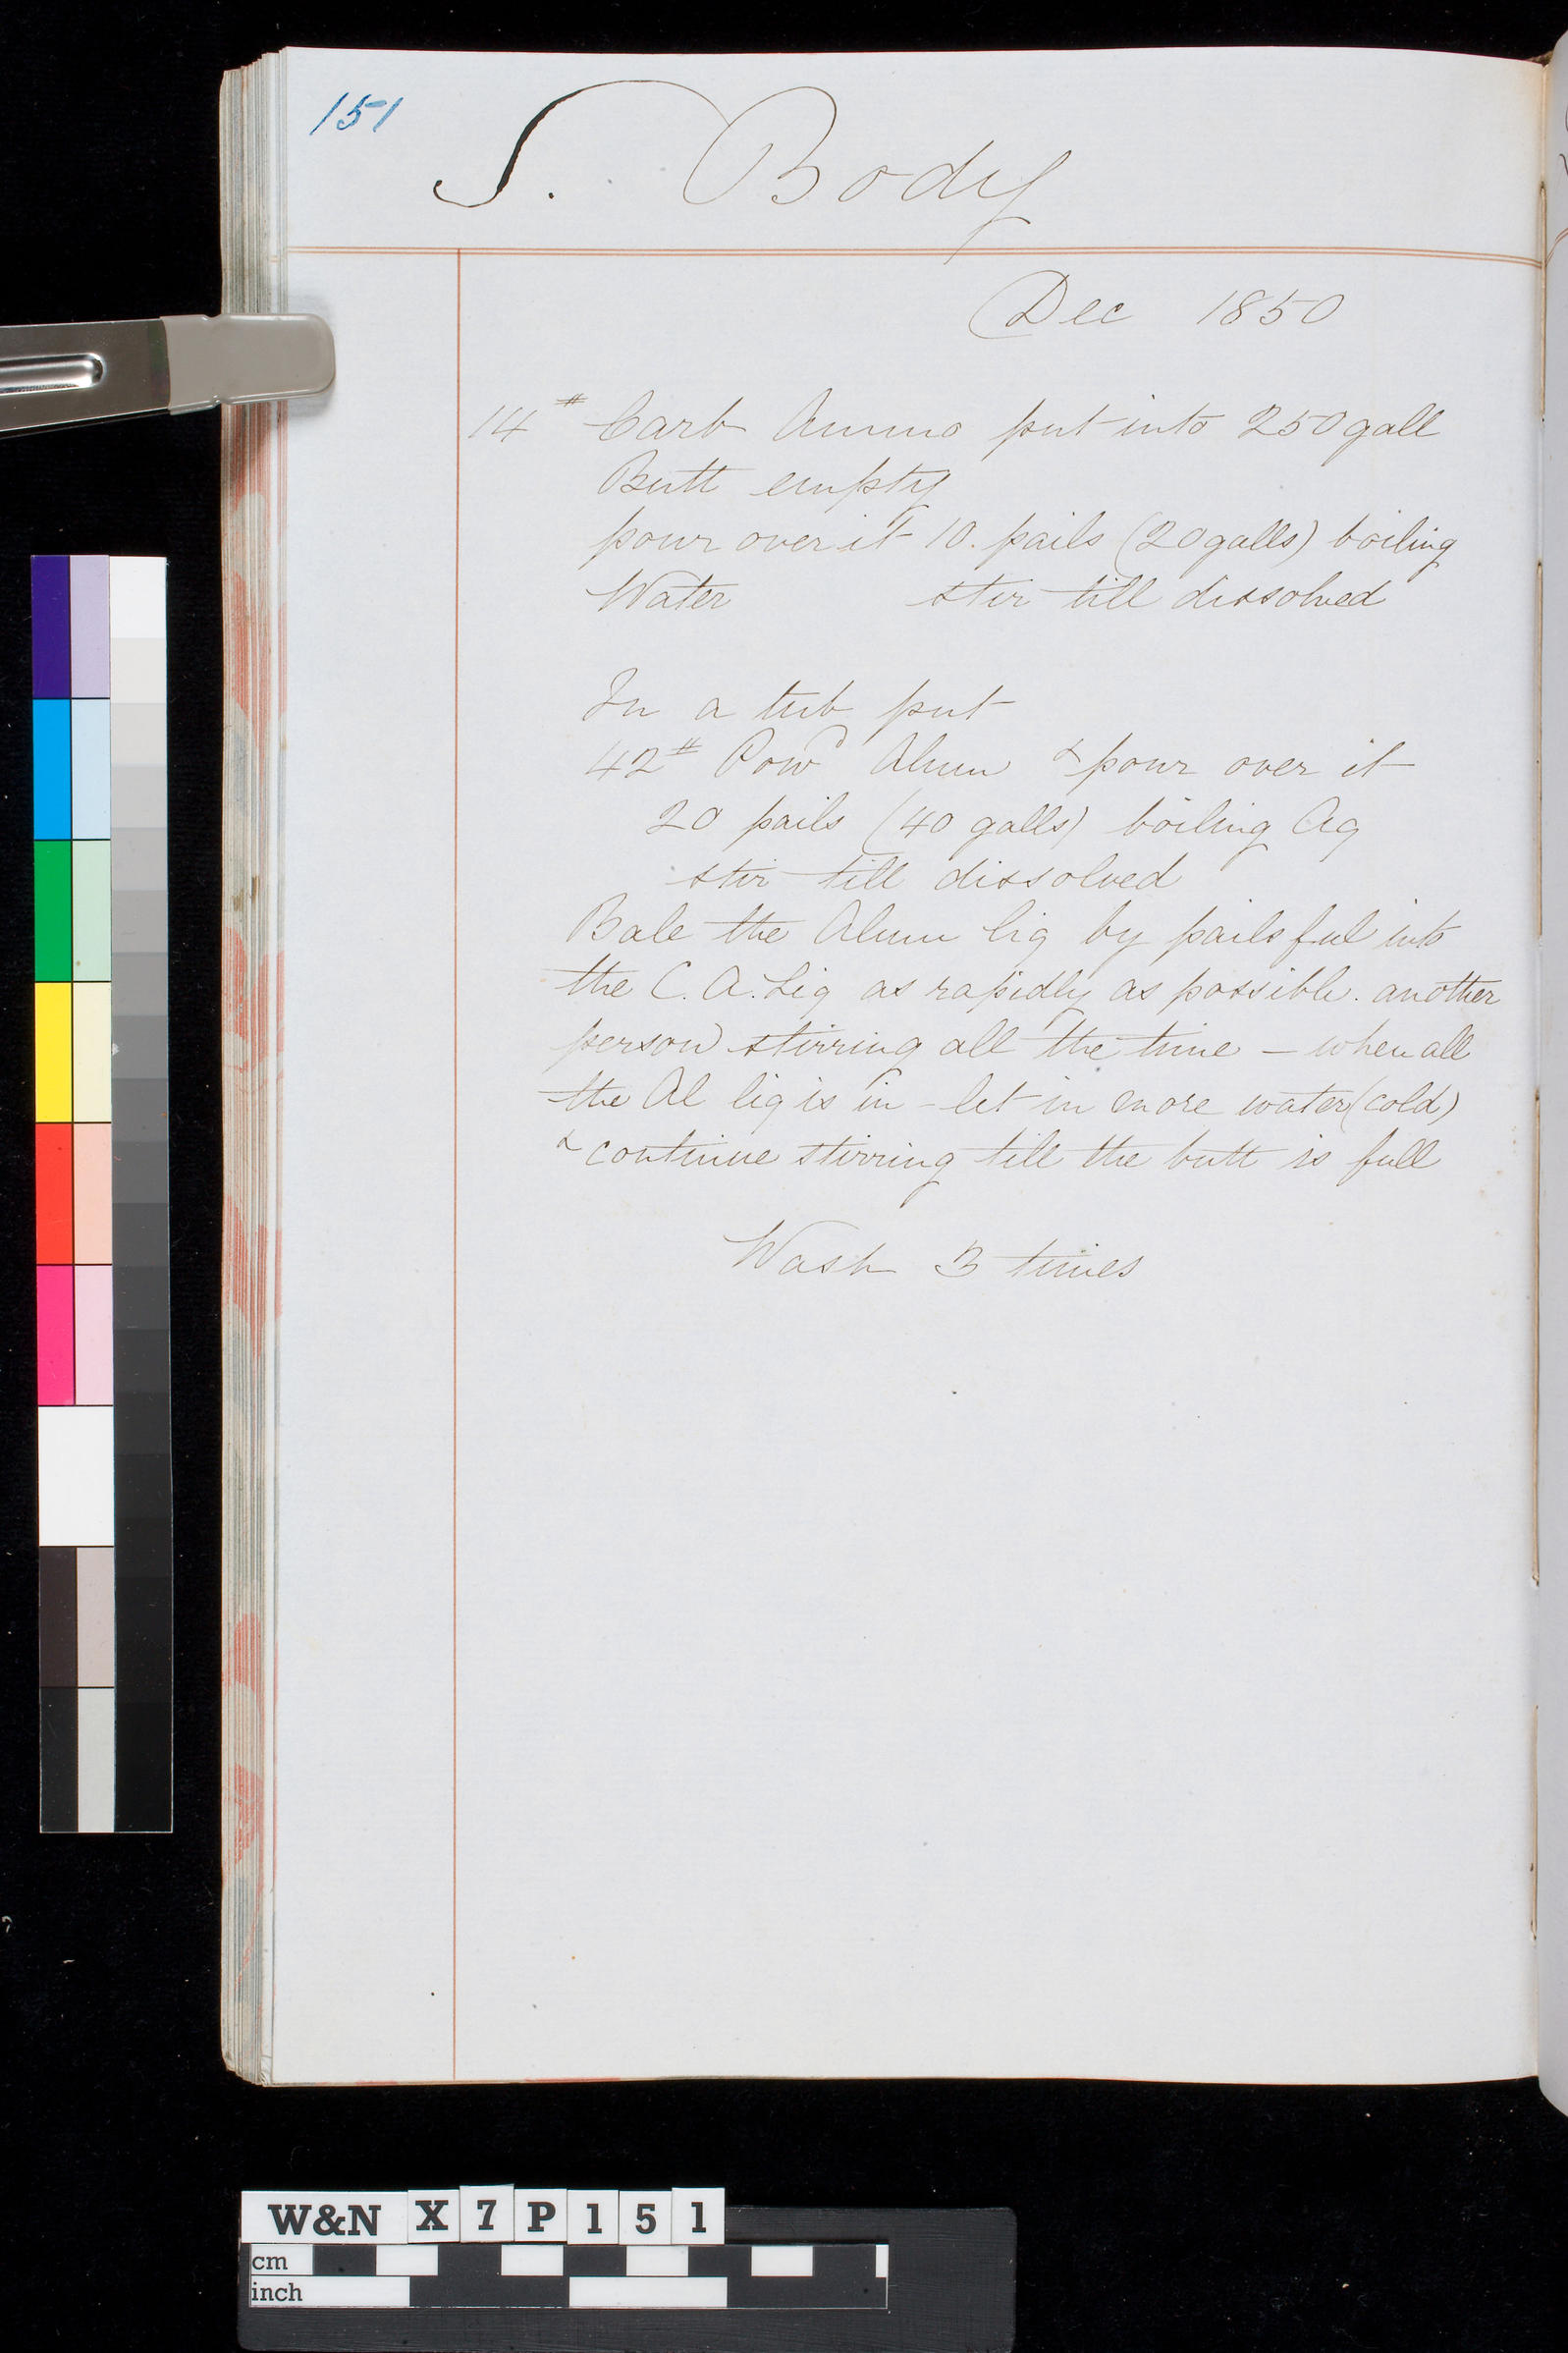 151
S. Body
Dec 1850
14# Carb Ammo put into 250 gall
Butt empty
pour over it 10. pails (20 galls) boiling
Water stir till dissolved
In a tub put
42# Powd Alum & pour over it
20 pails (40 galls) boiling Aq
stir till dissolved
Bale the Alum liq by pails ful into
the C. A. Liq as rapidly as possible. another
person stirring all the time - when all
the Al liq is in - let in more water (cold)
& continue stirring till the butt is full
Wash 3 times
W&N X7P151
cm
inch